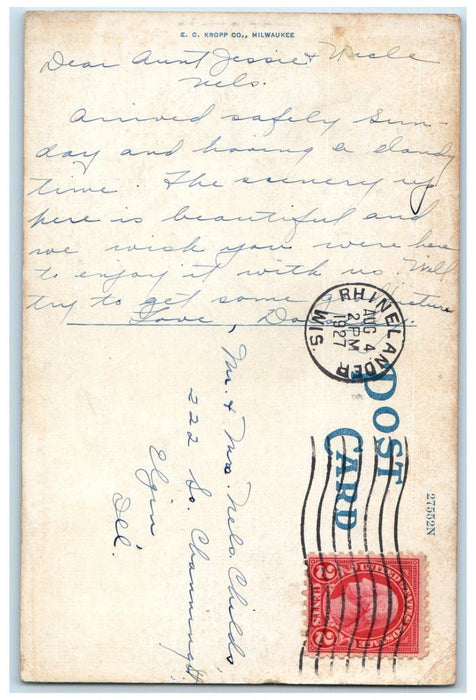 E. C. KROPP CO., MILWAUKEE
Dear Aunt Jessie & Uncle
Nels.
Arrived safely Sun-
day and having a dandy
time. The scenery up
here is beautiful and
we wish you were here
to enjoy it with us. Will
try to get some
Love
RHINELANDER
WIS.
AUG 4
2 PM
1927
POST
CARD
27552N
Mr. & Mrs. Nels Childs,
222 So. Channing St.
Elgin
Ill.
UNITED STATES POSTAGE
2 CENTS 2